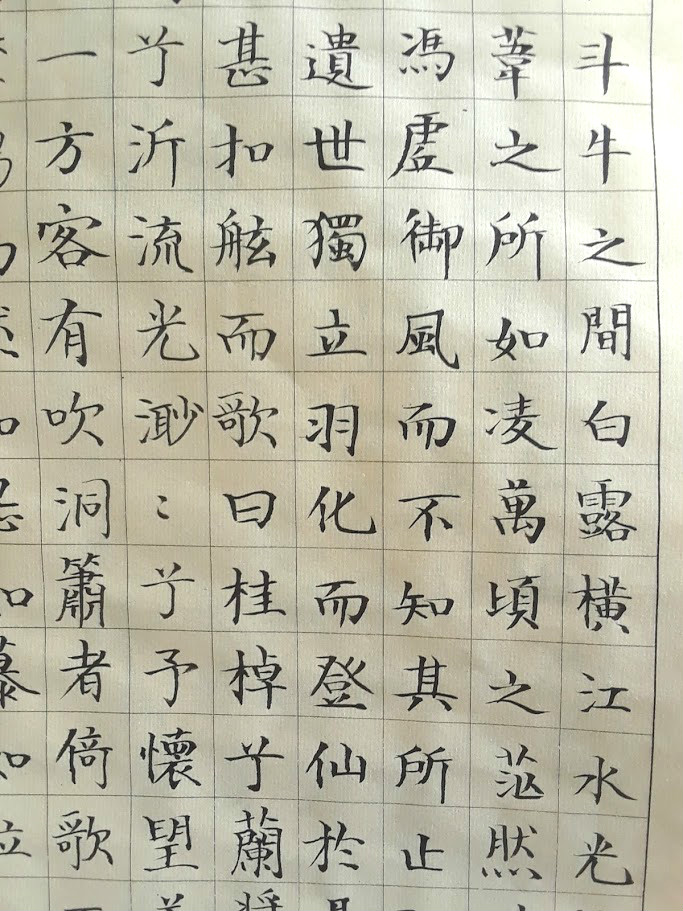 斗牛之間白露橫江水光
葦之所如凌萬頃之茫然
馮虛御風而不知其所止
遺世獨立羽化而登仙於
甚扣舷而歌曰桂棹兮蘭
兮泝流光渺〻兮予懷望
一方客有吹洞簫者倚歌